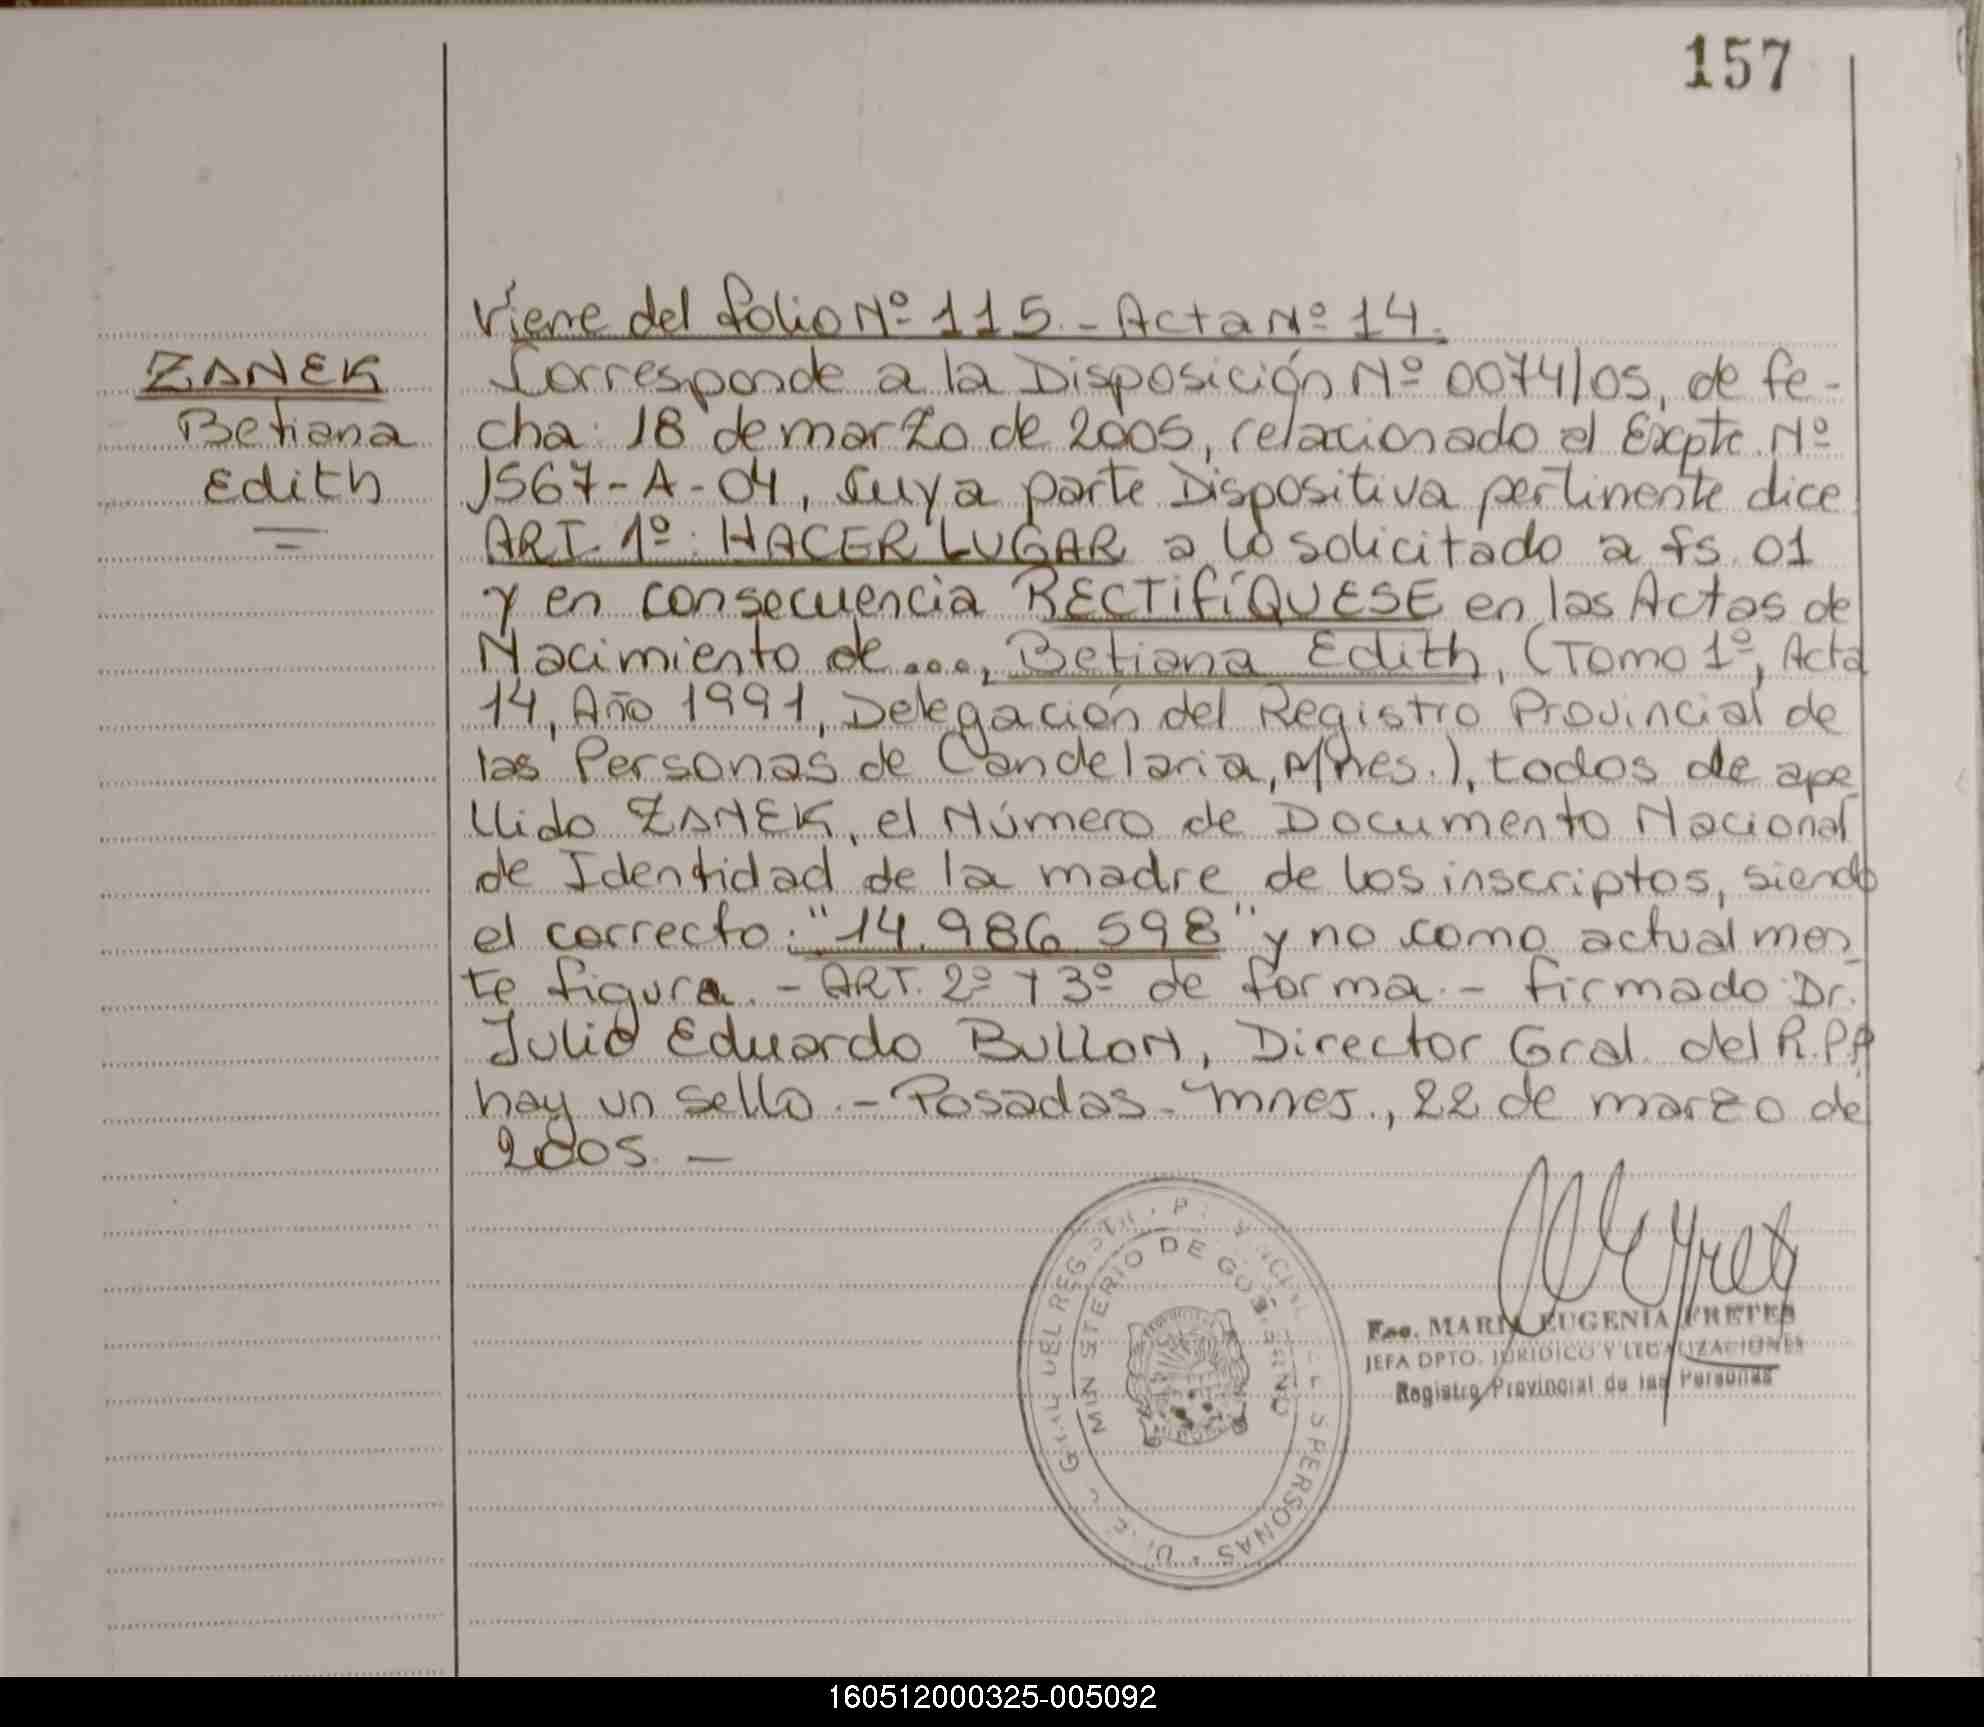 157
Viene del folio Nº 115. - Acta Nº 14.
ZANEK
Betiana
Edith
Corresponde a la Disposición Nº 0074/05, de fe-
cha: 18 de marzo de 2005, relacionado el Expte. Nº
1567-A-04, cuya parte Dispositiva pertinente dice
ART. 1º: HACER LUGAR a lo solicitado a fs. 01
y en consecuencia RECTIFÍQUESE en las Actas de
Nacimiento de..., Betiana Edith, (Tomo 1º, Acta
14, Año 1991, Delegación del Registro Provincial de
las Personas de Candelaria, Mnes.), todos de ape
llido ZANEK, el Número de Documento Nacional
de Identidad de la madre de los inscriptos, siendo
el correcto: "14.986.598" y no como actualmen
te figura. - ART. 2º Y 3º de forma. - firmado Dr.
Julio Eduardo BULLON, Director Gral. del R.P.P
hay un sello. - Posadas - Mnes., 22 de marzo de
2005. -
MINISTERIO DE GOBIERNO
MARIA EUGENIA FRETES
JEFA DPTO. JURIDICO Y LEGALIZACIONES
Registro Provincial de las Personas
160512000325-005092